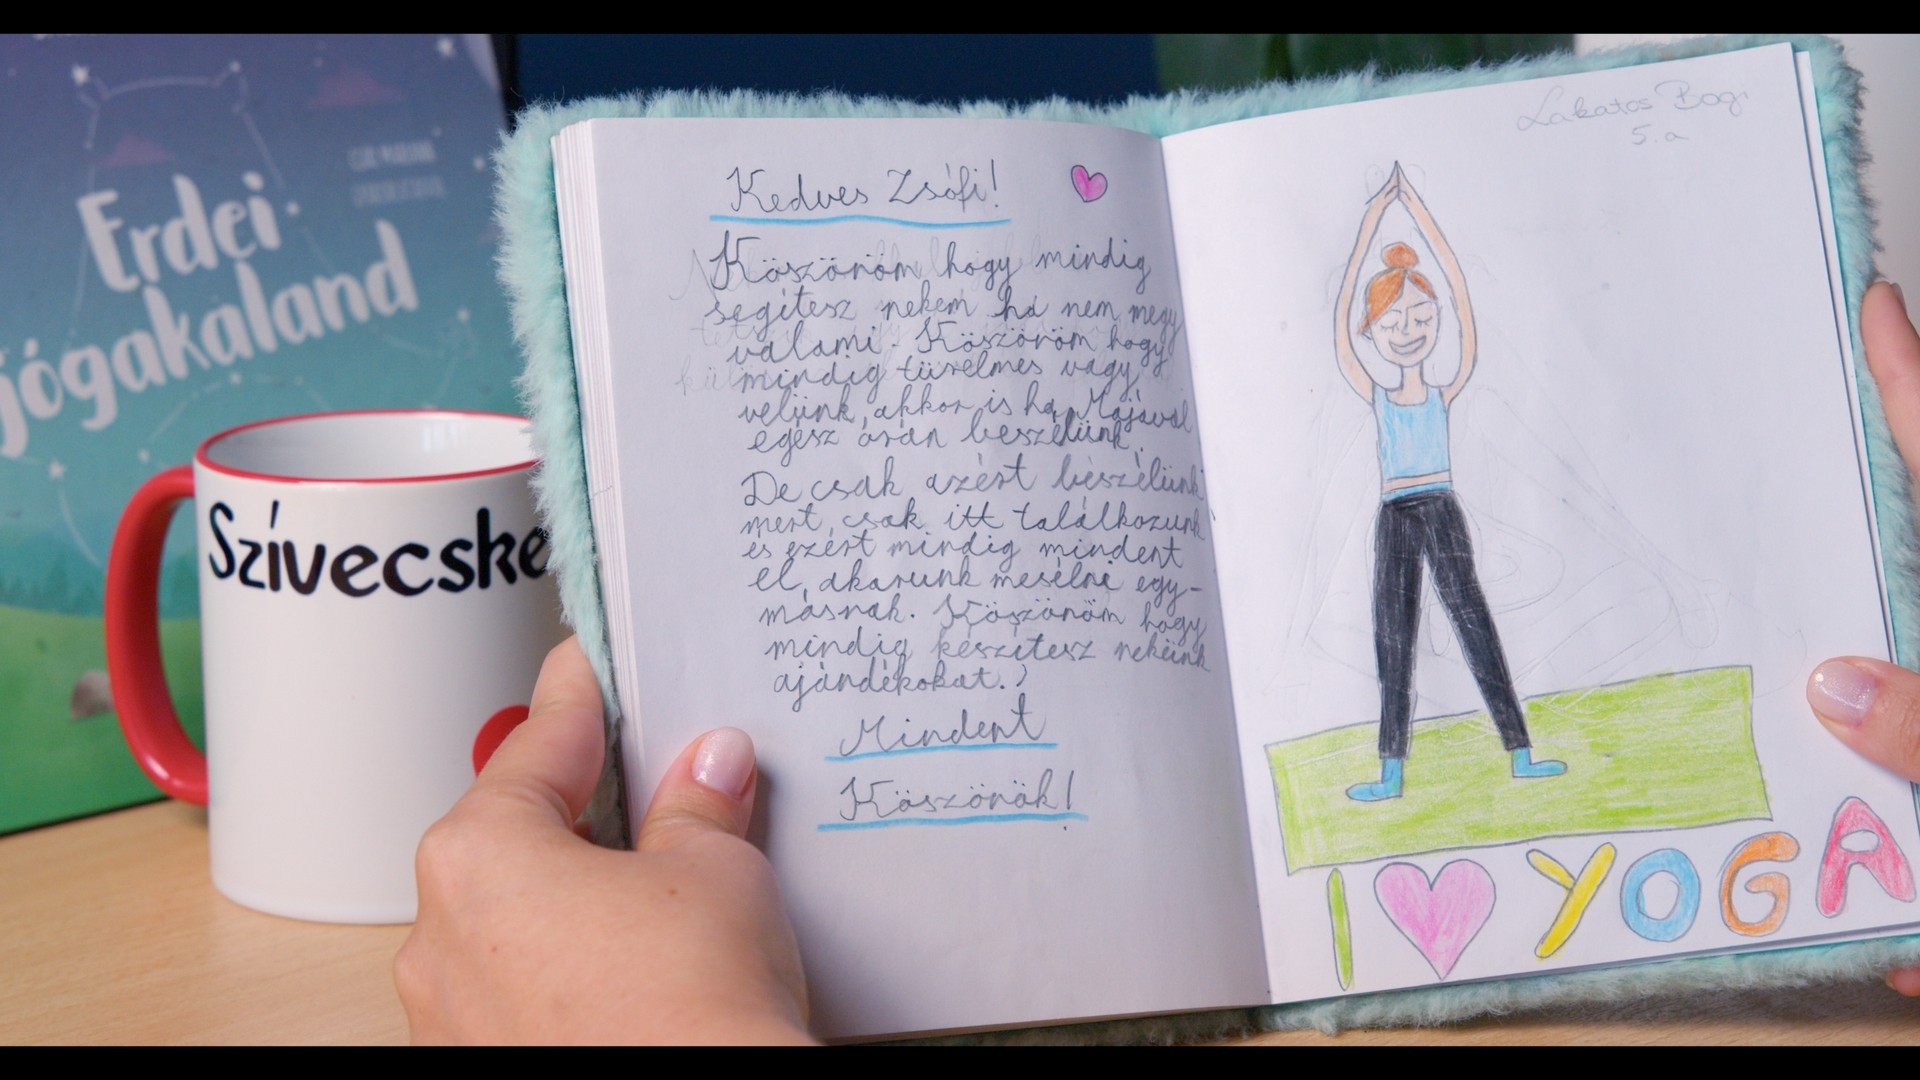 Erdei
jógakaland
Szívecske
Kedves Zsófi!
Köszönöm hogy mindig
segítesz nekem ha nem megy
valami. Köszönöm hogy
mindig türelmes vagy
velünk, akkor is ha Majával
egész órán beszélünk.
De csak azért beszélünk
mert, csak itt találkozunk
és ezért mindig mindent
el akarunk mesélni egy-
másnak. Köszönöm hogy
mindig készítesz nekünk
ajándékokat.)
Mindent
Köszönök!
Lakatos Bogi
5.a
I ♥ YOGA